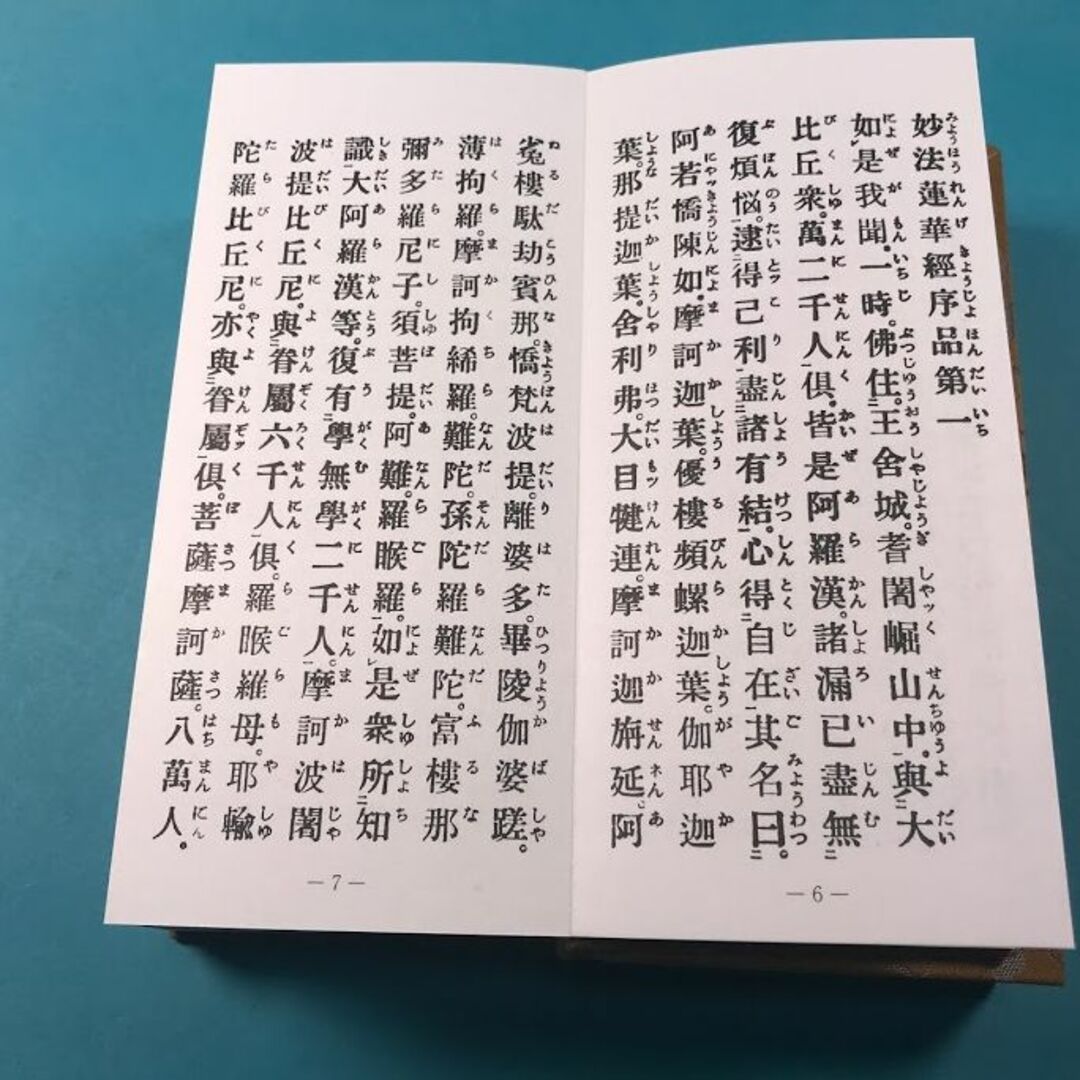 妙法蓮華經序品第一
如是我聞。一時。佛住。王舍城。耆闍崛山中。與大
比丘衆。萬二千人俱。皆是阿羅漢。諸漏已盡無
復煩悩。逮得己利盡諸有結。心得自在。其名曰。
阿若憍陳如。摩訶迦葉。優樓頻螺迦葉。伽耶迦
葉。那提迦葉。舍利弗。大目犍連。摩訶迦旃延。阿
— 6 —
㝹樓駄劫賓那。憍梵波提。離婆多。畢陵伽婆蹉。
薄拘羅。摩訶拘絺羅。難陀。孫陀羅難陀。富樓那
彌多羅尼子。須菩提。阿難。羅睺羅。如是衆所知
識大阿羅漢等。復有學無學二千人。摩訶波闍
波提比丘尼。與眷屬六千人俱。羅睺羅母。耶輸
陀羅比丘尼。亦與眷屬俱。菩薩摩訶薩。八萬人。
— 7 —